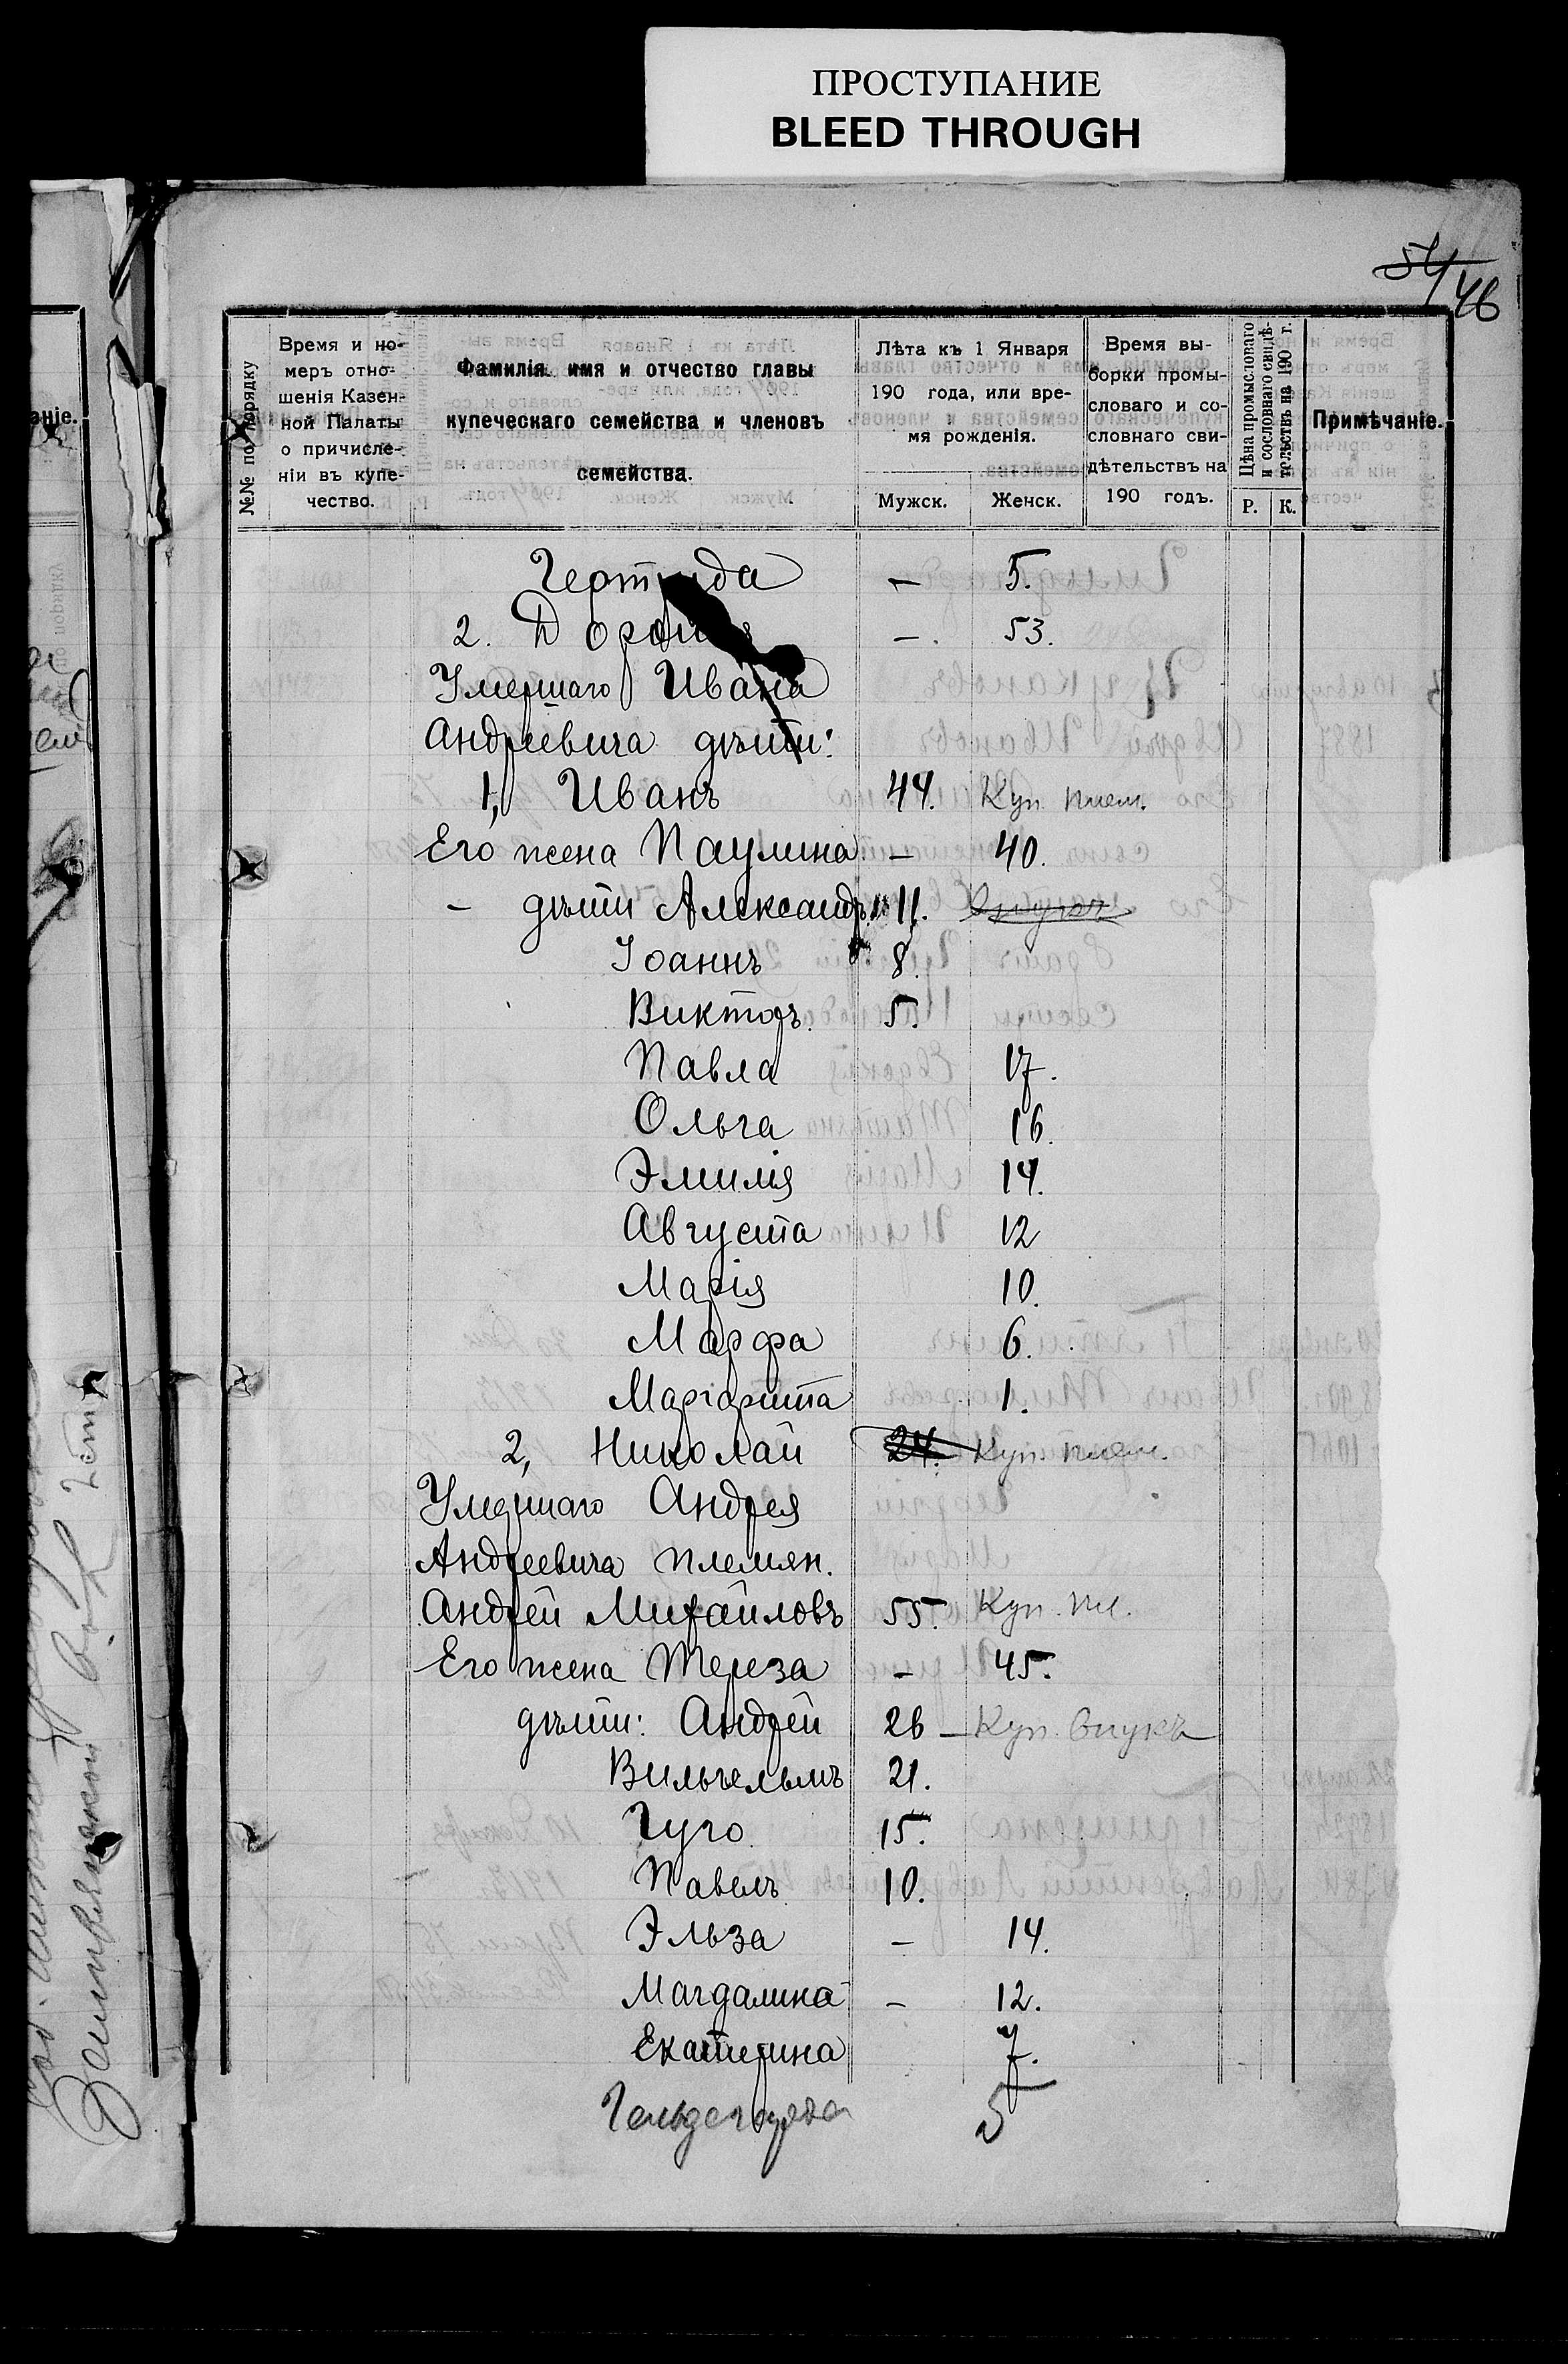 ПРОСТУПАНИЕ
BLEED THROUGH
54/46
№№ по порядку
Время и но-
меръ отно-
шенія Казен-
ной Палаты
о причисле-
ніи въ купе-
чество.
Фамилія имя и отчество главы
купеческаго семейства и членовъ
семейства.
Лѣта къ 1 Января
190 года, или вре-
мя рожденія.
Мужск. Женск.
Время вы-
борки промы-
словаго и со-
словнаго сви-
дѣтельствъ на
190 годъ.
Цѣна промысловаго
и сословнаго свидѣ-
тельствъ на 190 г.
Р. К.
Примѣчаніе.
Гертруда — 5.
2. —. 53.
Умершаго Ивана
Андреевича дѣти:
1, Иванъ 44. Куп. плем.
Его жена Паулина — 40.
— дѣти Александръ 11. Внукъ
Іоаннъ 8.
Викторъ 5.
Павла 17.
Ольга 16.
Эмилія 14.
Августа 12
Марія 10.
Марфа 6.
Маргарита 1.
2, Николай 24. Куп. плем.
Умершаго Андрея
Андреевича племян.
Андрей Михайловъ 55. Куп. пл.
Его жена Тереза — 45.
дѣти: Андрей 26 — Куп. внукъ
Вильгельмъ 21.
Гуго 15.
Павелъ 10.
Эльза — 14.
Магдалина — 12.
Екатерина 7.
5